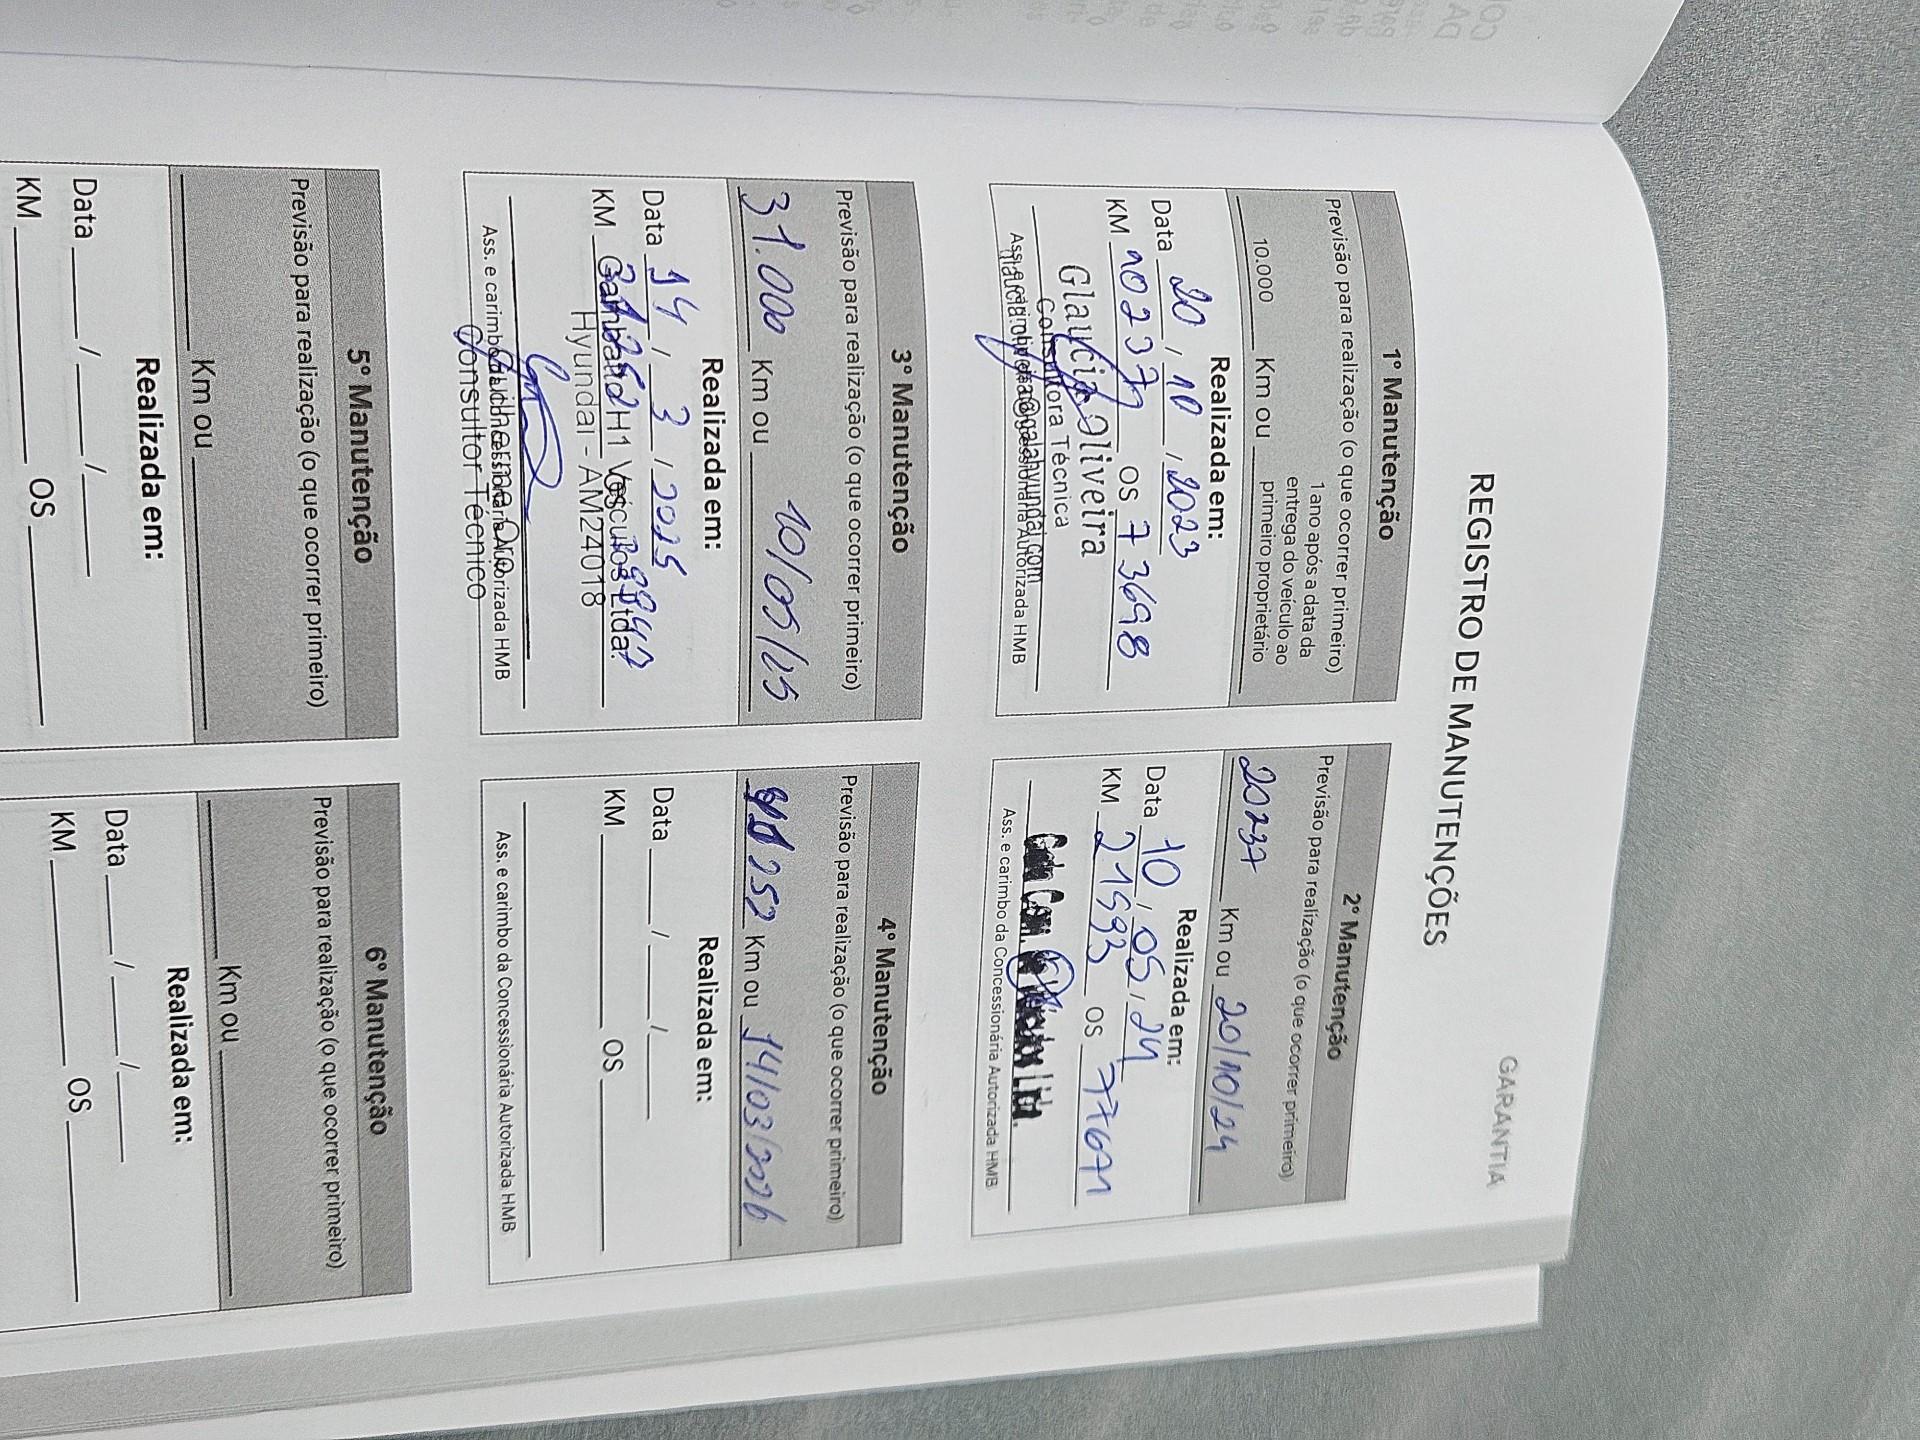 GARANTIA
REGISTRO DE MANUTENÇÕES
1º Manutenção
Previsão para realização (o que ocorrer primeiro)
10.000 Km ou 1 ano após a data da
entrega do veículo ao
primeiro proprietário
Realizada em:
Data 20 / 10 / 2023
KM 10237 OS 73698
Glaucia Oliveira
Consultora Técnica
Ass. e carimbo da Concessionária Autorizada HMB
2º Manutenção
Previsão para realização (o que ocorrer primeiro)
20237 Km ou 20/10/24
Realizada em:
Data 10 / 05 / 24
KM 21593 OS 77671
Ltda.
Ass. e carimbo da Concessionária Autorizada HMB
3º Manutenção
Previsão para realização (o que ocorrer primeiro)
31.000 Km ou 10/05/25
Realizada em:
Data 14 / 3 / 2025
KM OS
Gambatto H1 Veículos Ltda.
Hyundai - AM24018
Ass. e carimbo da Concessionária Autorizada HMB
Consultor Técnico
4º Manutenção
Previsão para realização (o que ocorrer primeiro)
Km ou 14/03/2026
Realizada em:
Data / /
KM OS
Ass. e carimbo da Concessionária Autorizada HMB
5º Manutenção
Previsão para realização (o que ocorrer primeiro)
Km ou
Realizada em:
Data / /
KM OS
6º Manutenção
Previsão para realização (o que ocorrer primeiro)
Km ou
Realizada em:
Data / /
KM OS